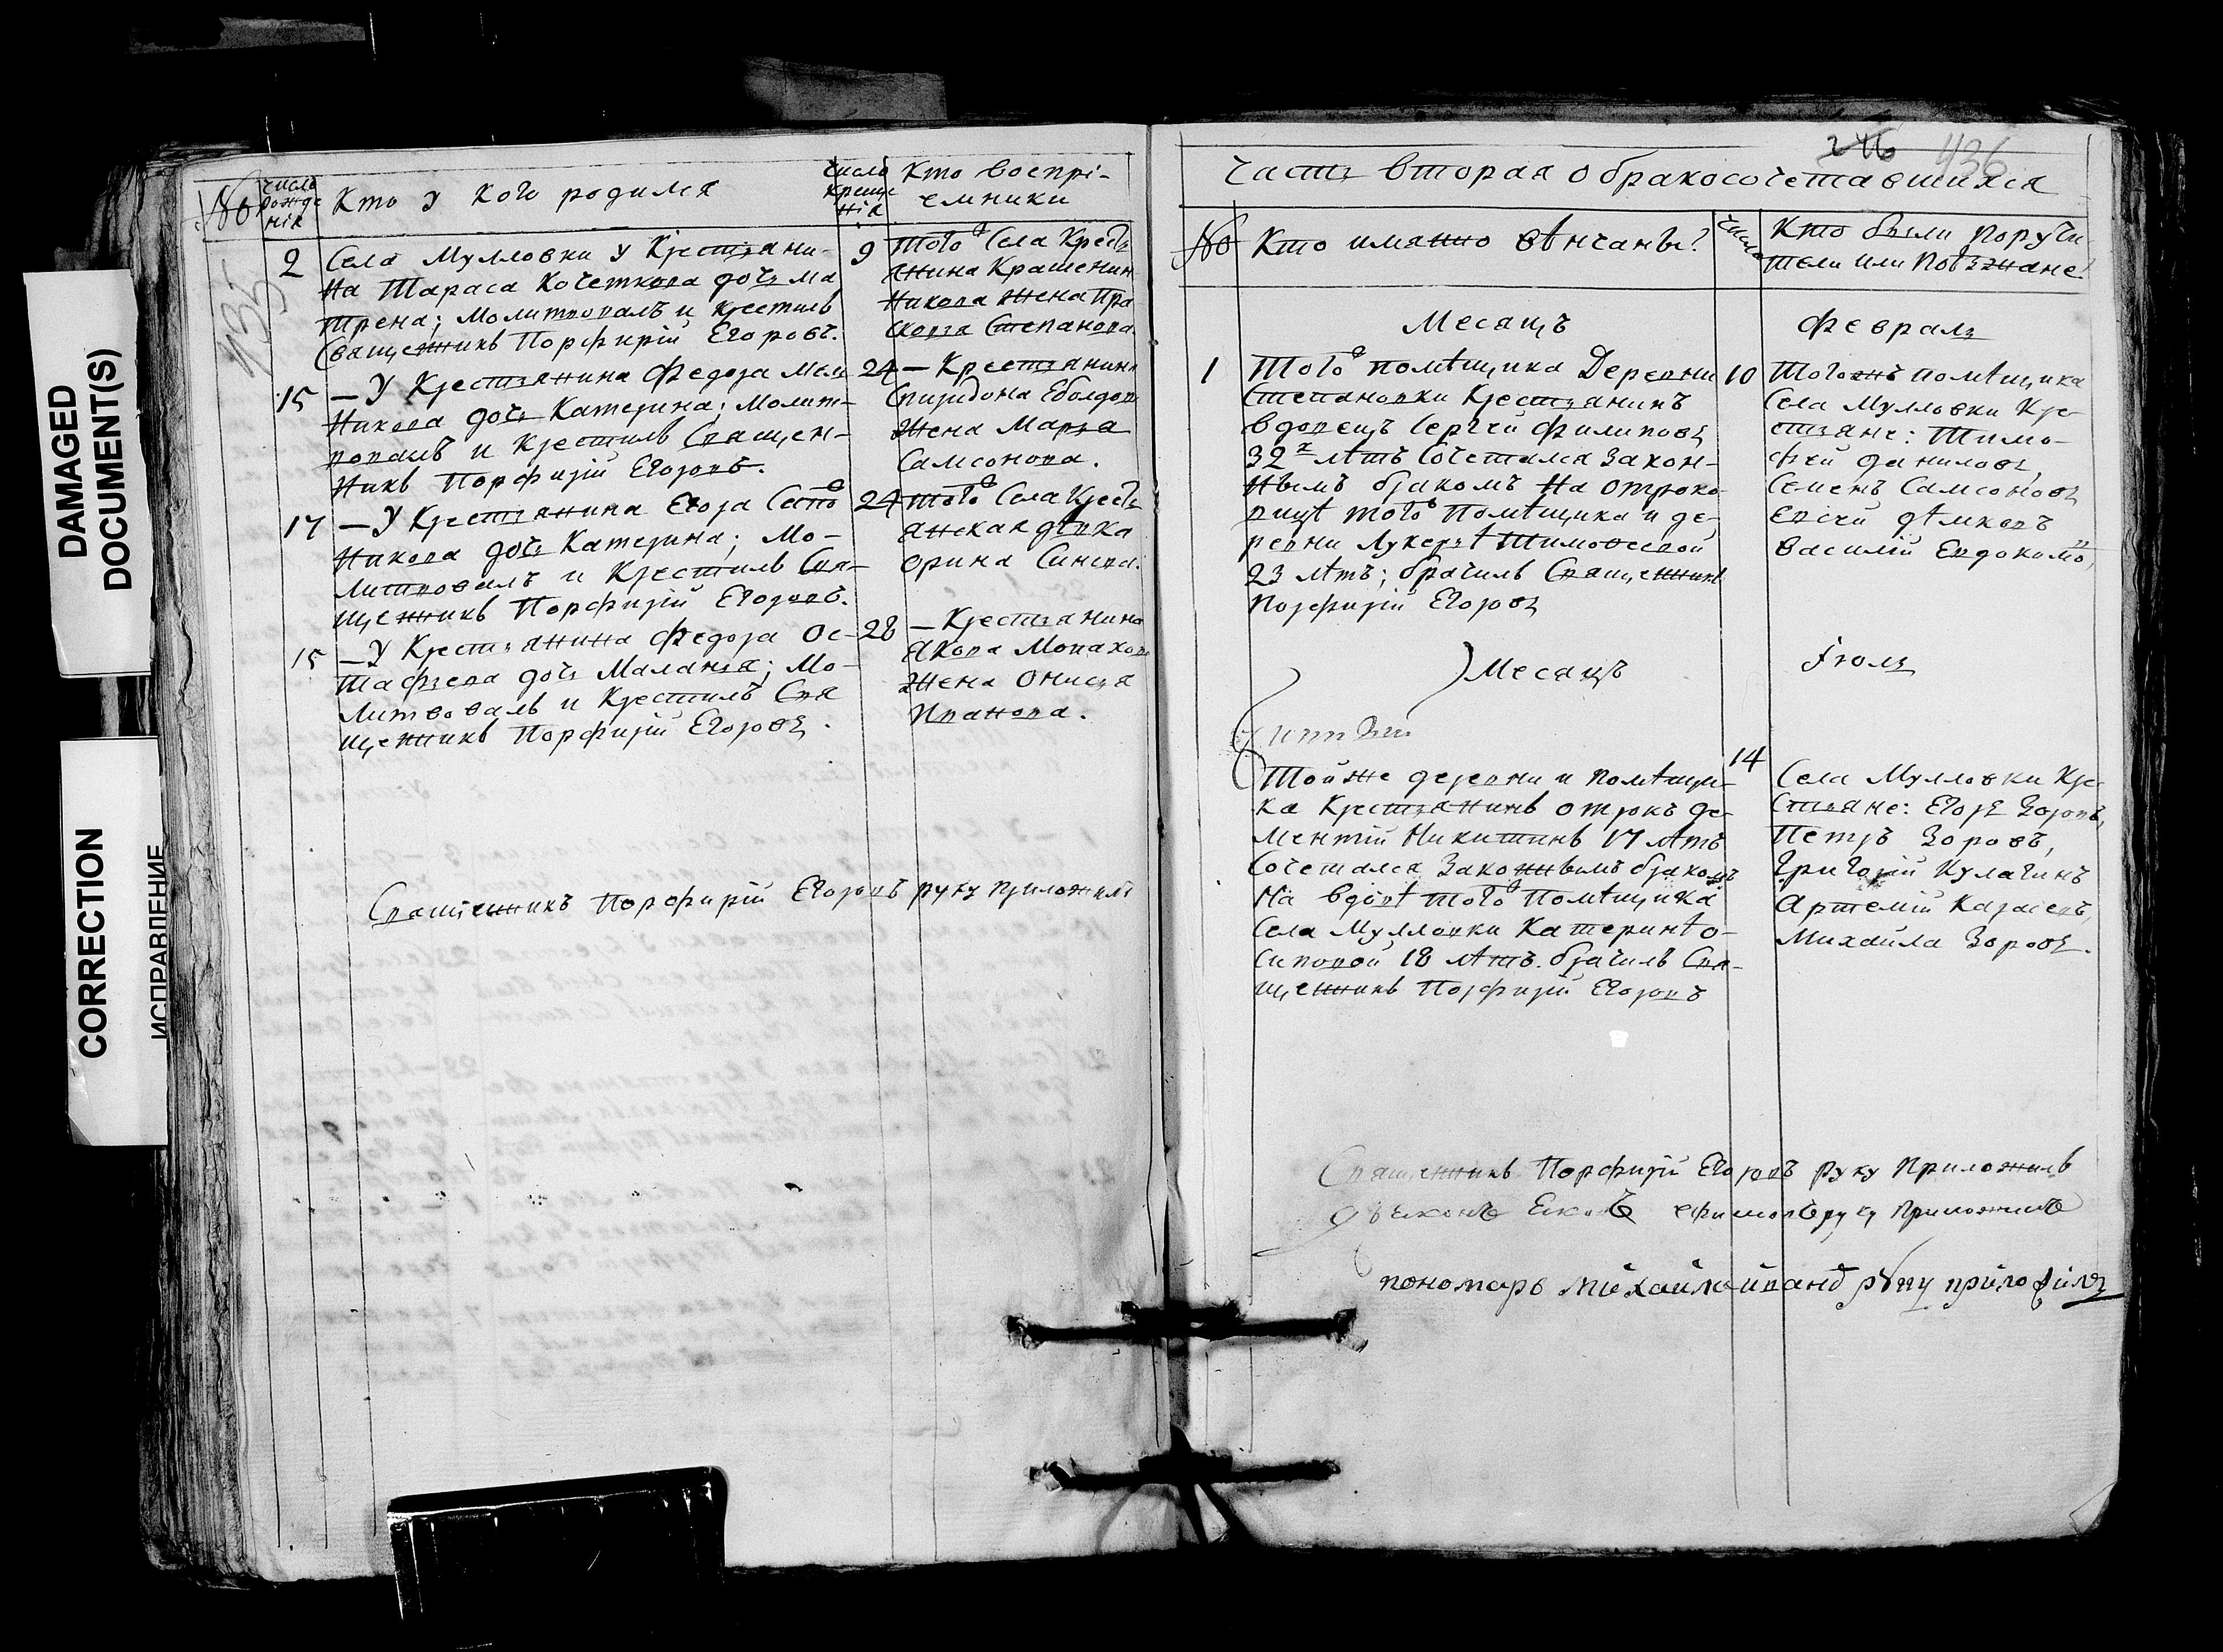 DAMAGED
DOCUMENT(S)
CORRECTION
ИСПРАВЛЕНИЕ
435
№
число рожде нія
Кто у кого родился
число креще нія
Кто воспрі-
емники
2
Села Мулловки у Крестьяни-
на Тараса Кочеткова дочь Ма
трена; Молитвовалъ и крестилъ
Священникъ Порфирій Егоровъ.
9
того Села Кресть
янина Крашенин
никова жена Пра
сковья Степанова
15
— У Крестьянина Федора Мель
никова дочь Катерина; Молит-
вовалъ и Крестилъ Священ-
никъ Порфирій Егоровъ.
24
— Крестьянина
Спиридона
Жена Марья
Самсонова.
17
— У Крестьянина Егора Сапо
никова дочь Катерина; Мо-
литвовалъ и Крестилъ Свя-
щенникъ Порфирій Егоровъ.
24
того Села Кресть
янская дѣвка
орина Синева.
15
— У Крестьянина Федора Ос-
тафьева дочь Маланья; Мо-
литвовалъ и Крестилъ Свя
щенникъ Порфирій Егоровъ.
28
— Крестьянина
Якова Монахова
Жена Онисья
Иванова.
Священникъ Порфирій Егоровъ руку приложилъ
246 436
Часть вторая о бракосочетавшихся
№
Кто имянно вѣнчаны?
число
Кто были поручи
тели или Поѣзжане?
Месяцъ
Февраль
1
Того помѣщика Деревни
Степановки Крестьянинъ
вдовецъ Сергѣй Филиповъ
32х лѣтъ Сочетался Закон-
нымъ бракомъ на отроко-
вицѣ того Помѣщика и де-
ревни Лукерьѣ Тимофеевой
23 лѣтъ; брачилъ Священникъ
Порфирій Егоровъ
10
Тогожъ помѣщика
Села Мулловки Кре-
стьяне: Тимо-
фѣй даниловъ,
Семенъ Самсоновъ
Евсѣй
Василій Евдокимовъ
Месяцъ
Іюль
14
Тойже деревни и помѣщи-
ка Крестьянинъ отрокъ де-
ментій Никитинъ 17 лѣтъ
Сочетался Законнымъ бракомъ
На вдовѣ того Помѣщика
Села Мулловки Катеринѣ о-
сиповой 18 лѣтъ. брачилъ Свя-
щенникъ Порфирій Егоровъ
Села Мулловки Кре
стьяне: Егоръ Зоровъ,
Петръ Зоровъ,
Григорій Кулагинъ
Артемій Карасевъ,
Михайла Зоровъ.
Священникъ Порфирій Егоровъ руку Приложилъ
руку приложилъ
пономарь михайло ивановъ руку приложилъ